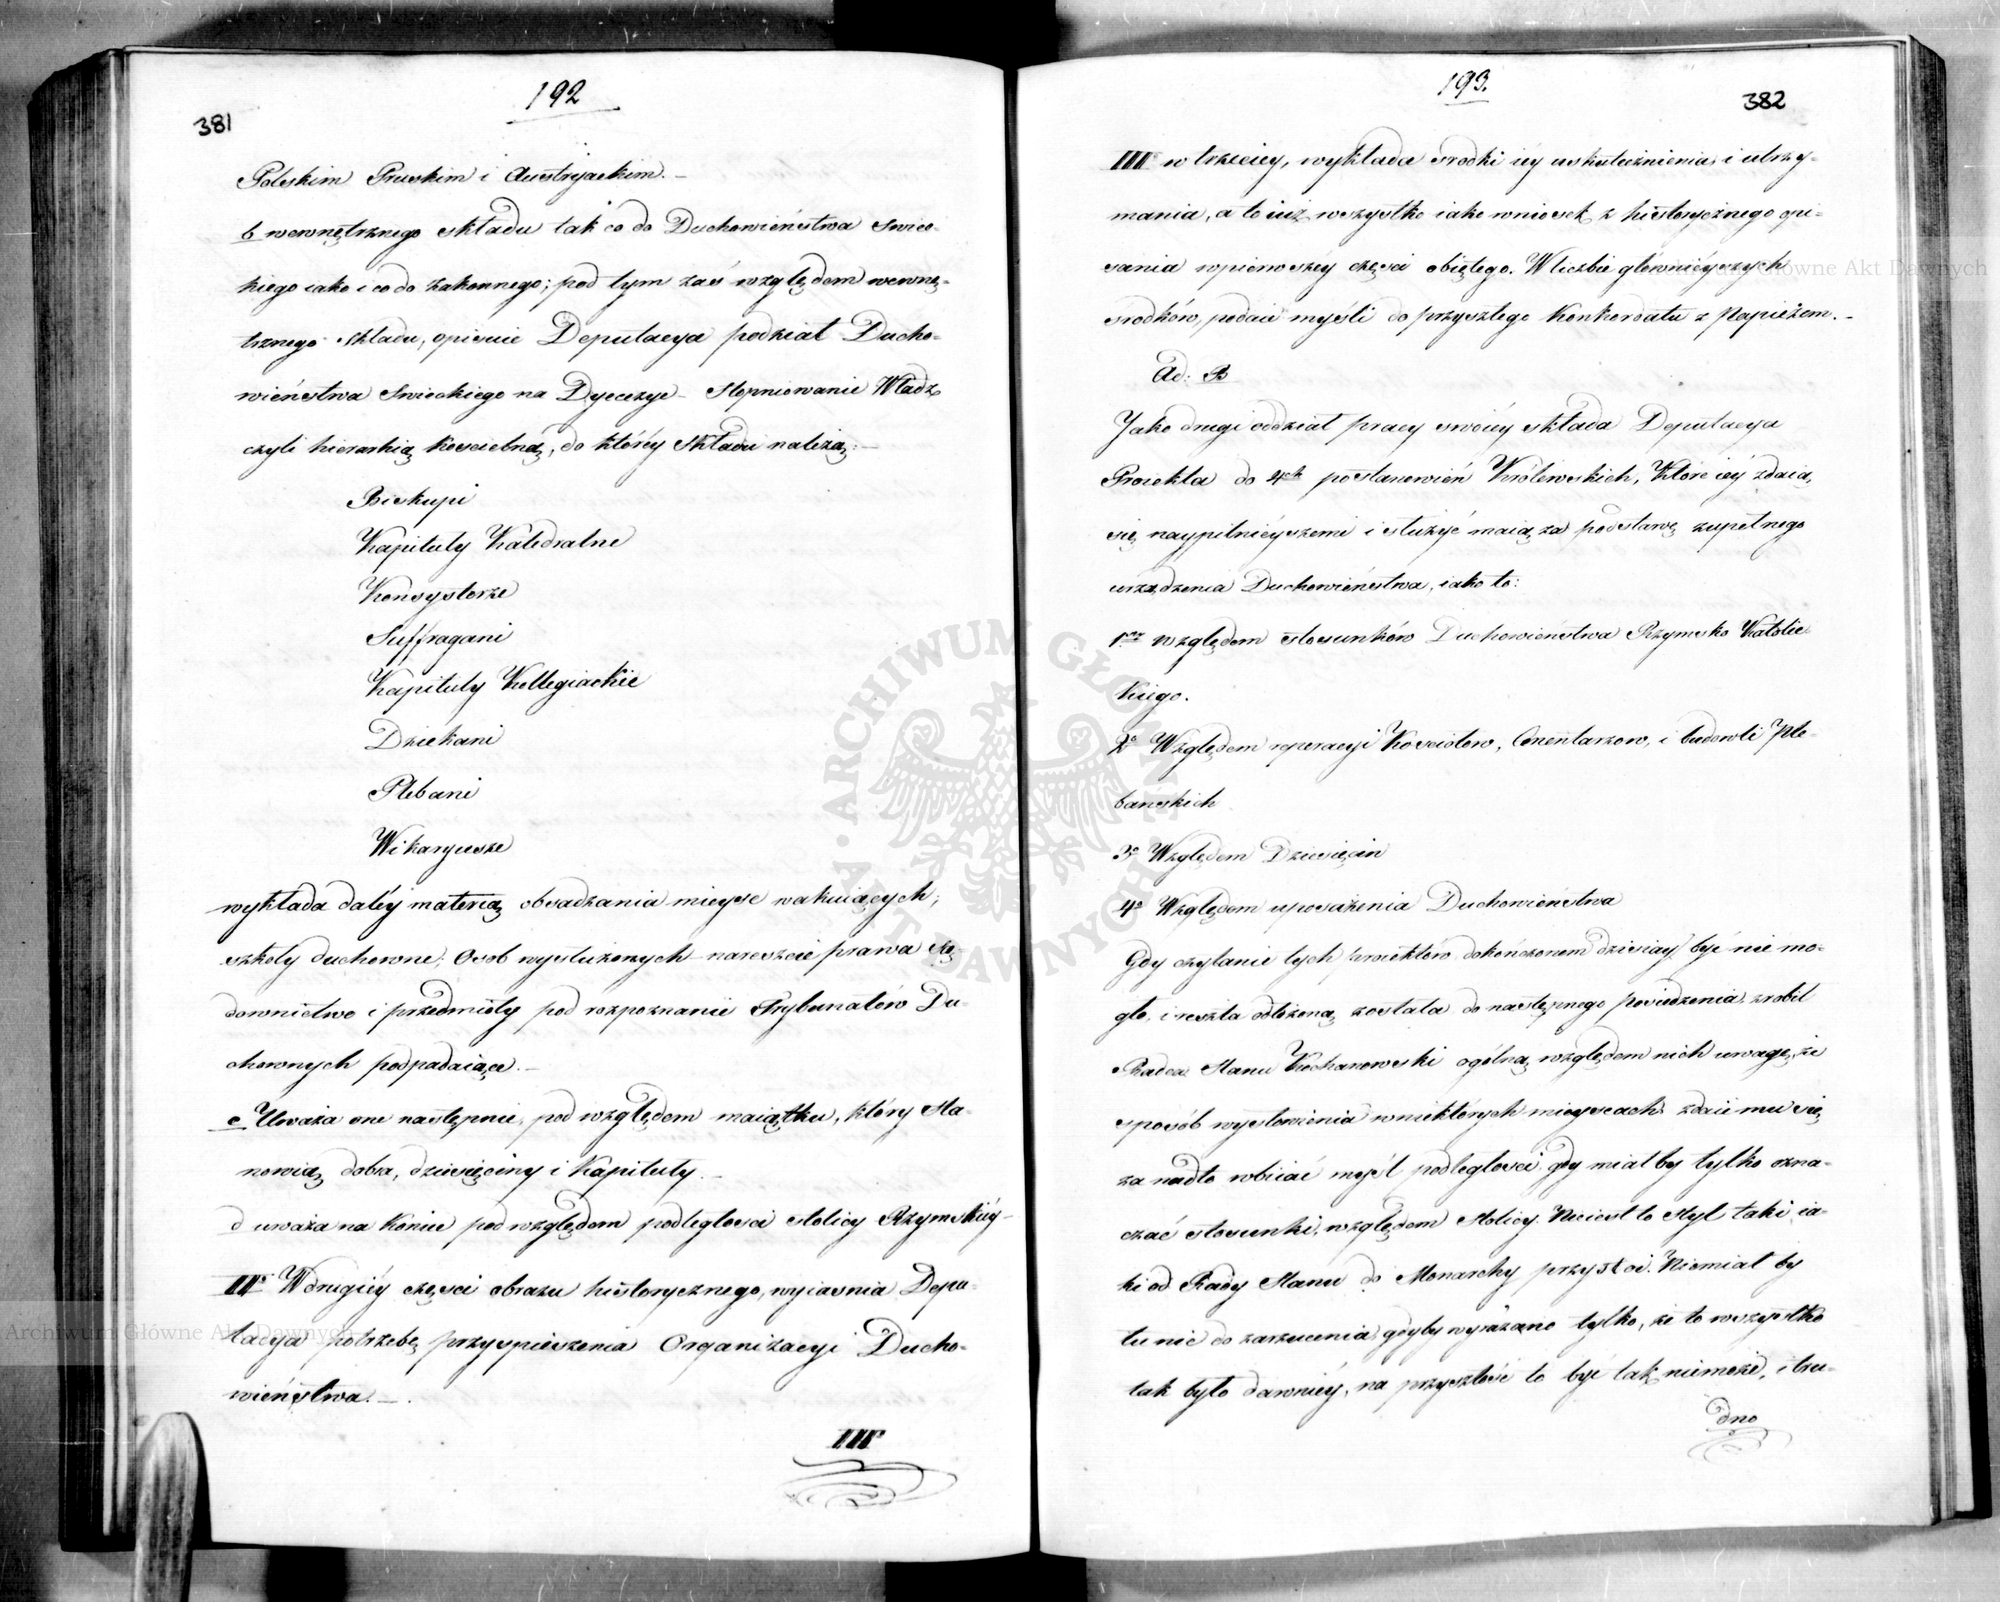 192
381
Polskim Pruskim i Austryackim. –
b wewnętrznego składu tak co do Duchowieństwa Swiec-
kiego iako i co do zakonnego; pod tym zaś względem wewnę-
trznego składu, opisuie Deputacya podział Ducho-
wieństwa Swieckiego na Dyecezye – Stopniowanie Władz
czyli hierarhią kościelną, do którey składu należą: –
Biskupi
Kapituły Katedralne
Konsystorze
Suffragani
Kapituły Kollegiackie
Dziekani
Plebani
Wikaryusze
wykłada daléy materią obsadzania mieysc wakuiących;
szkoły duchowne; Osob wysłużonych – nareszcie prawa Są-
downictwo i przedmioty pod rozpoznanie Trybunałów Du-
chownych podpadaiące. –
c Uważa one następnie, pod względem maiątku, który sta-
nowią dobra, dziesięciny i Kapituły. –
d uważa na koniec pod względem podległosci stolicy Rzymskiéy –
IIo W drugiéy częsci obrazu historycznego, wyiasnia Depu-
tacya potrzebę przyspieszenia Organizacyi Ducho-
wieństwa. –.
IIIo
193.
382
IIIo w trzeciey, wykłada srodki iéy uskutecznienia i utrzy-
mania, a to iuż wszystko iako wniosek z historycznego opi-
sania w pierwszey części obiętego. W liczbie głównieyszych
srodków, podaie myśli do przyszłego Konkordatu z Papieżem. –
Ad: B
Jako drugi oddział pracy swoiéy składa Deputacya
Proiekta do 4ch postanowień Królewskich, Które iéy zdaią
się naypilnieyszemi i służyć maią za podstawę zupełnego
urządzenia Duchowieństwa, iako to:
1mo Względem stosunków Duchowieństwa Rzymsko Katolic-
kiego.
2o Względem reperacyi Kosciołow, Cmentarzow, i budowli Ple-
banskich
3o Względem Dziesięcin
4o Względem uposażenia Duchowieństwa
Gdy czytanie tych proiektów dokończonem dzisiay być nie mo-
gło, i reszta odłożoną została do następnego posiedzenia, zrobił
Radca Stanu Kochanowski ogólną względem nich uwagę, że
sposób wysłowienia w niektórych mieyscach zdaie mu się
za nadto wbiiać myśl podległosci, gdy miałby tylko ozna-
czać stosunki, względem Stolicy. Nie iest to styl taki ia-
ki od Rady Stanu do Monarchy przystoi. Niemiał by
tu nic do zarzucenia, gdyby wyrażano tylko, że to wszystko
tak było dawniéy, na przyszłość to być tak niemoże, i tru-
dno
Archiwum Główne Akt Dawnych
ARCHIWUM GŁÓWNE AKT DAWNYCH